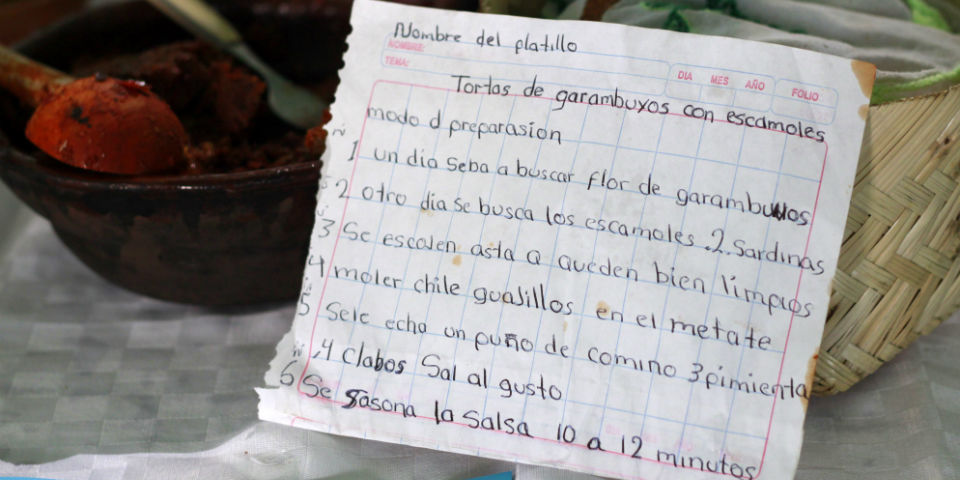 Nombre del platillo
NOMBRE:
TEMA:
DIA MES AÑO FOLIO
Tortas de garambuyos con escamoles
modo d preparasion
1 un dia seba a buscar flor de garambullos
2 otro dia se busca los escamoles 2 sardinas
3 Se escojen asta q queden bien limpios
4 moler chile guajillos en el metate
5 sele echa un puño de comino 3 pimienta
,4 clabos Sal al gusto
6 Se sasona la salsa 10 a 12 minutos